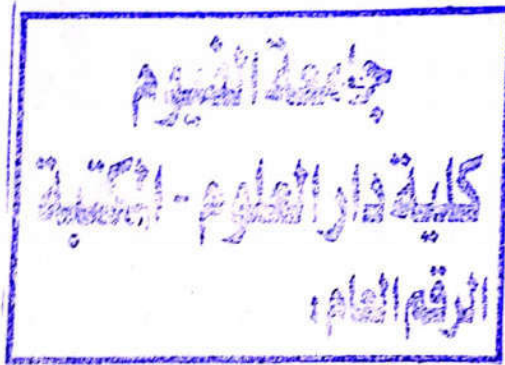 جامعة الفيوم
كلية دار العلوم - المكتبة
الرقم العام :